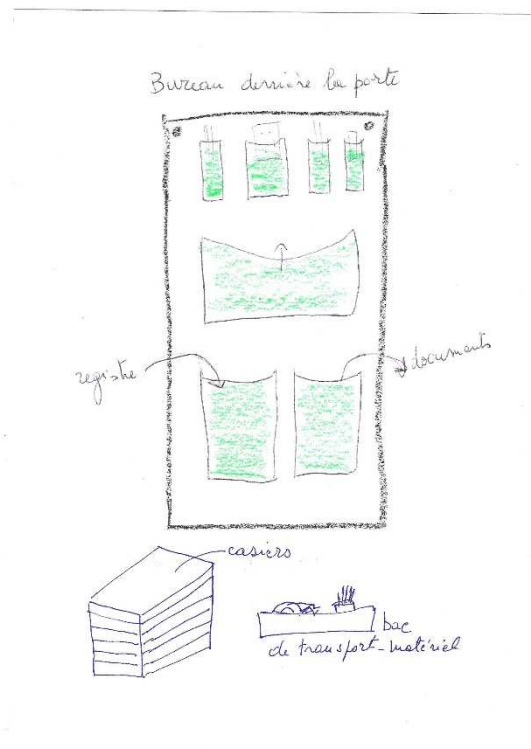 Bureau derrière la porte
registre
documents
casiers
bac
de transport-matériel